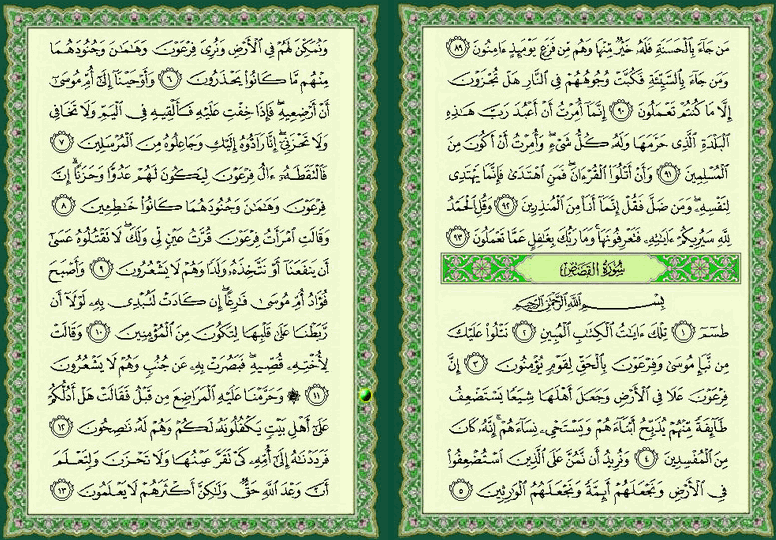 مَن جَآءَ بِٱلْحَسَنَةِ فَلَهُۥ خَيْرٌ مِّنْهَا وَهُم مِّن فَزَعٍ يَوْمَئِذٍ ءَامِنُونَ ٨٩
وَمَن جَآءَ بِٱلسَّيِّئَةِ فَكُبَّتْ وُجُوهُهُمْ فِى ٱلنَّارِ هَلْ تُجْزَوْنَ
إِلَّا مَا كُنتُمْ تَعْمَلُونَ ٩٠ إِنَّمَآ أُمِرْتُ أَنْ أَعْبُدَ رَبَّ هَٰذِهِ
ٱلْبَلْدَةِ ٱلَّذِى حَرَّمَهَا وَلَهُۥ كُلُّ شَىْءٍ ۖ وَأُمِرْتُ أَنْ أَكُونَ مِنَ
ٱلْمُسْلِمِينَ ٩١ وَأَنْ أَتْلُوَا۟ ٱلْقُرْءَانَ ۖ فَمَنِ ٱهْتَدَىٰ فَإِنَّمَا يَهْتَدِى
لِنَفْسِهِۦ ۖ وَمَن ضَلَّ فَقُلْ إِنَّمَآ أَنَا۠ مِنَ ٱلْمُنذِرِينَ ٩٢ وَقُلِ ٱلْحَمْدُ
لِلَّهِ سَيُرِيكُمْ ءَايَٰتِهِۦ فَتَعْرِفُونَهَا ۚ وَمَا رَبُّكَ بِغَٰفِلٍ عَمَّا تَعْمَلُونَ ٩٣
سُورَةُ القَصَصِ
بِسْمِ ٱللَّهِ ٱلرَّحْمَٰنِ ٱلرَّحِيمِ
طسٓمٓ ١ تِلْكَ ءَايَٰتُ ٱلْكِتَٰبِ ٱلْمُبِينِ ٢ نَتْلُوا۟ عَلَيْكَ
مِن نَّبَإِ مُوسَىٰ وَفِرْعَوْنَ بِٱلْحَقِّ لِقَوْمٍ يُؤْمِنُونَ ٣ إِنَّ
فِرْعَوْنَ عَلَا فِى ٱلْأَرْضِ وَجَعَلَ أَهْلَهَا شِيَعًا يَسْتَضْعِفُ
طَآئِفَةً مِّنْهُمْ يُذَبِّحُ أَبْنَآءَهُمْ وَيَسْتَحْىِۦ نِسَآءَهُمْ ۚ إِنَّهُۥ كَانَ
مِنَ ٱلْمُفْسِدِينَ ٤ وَنُرِيدُ أَن نَّمُنَّ عَلَى ٱلَّذِينَ ٱسْتُضْعِفُوا۟
فِى ٱلْأَرْضِ وَنَجْعَلَهُمْ أَئِمَّةً وَنَجْعَلَهُمُ ٱلْوَٰرِثِينَ ٥
وَنُمَكِّنَ لَهُمْ فِى ٱلْأَرْضِ وَنُرِىَ فِرْعَوْنَ وَهَٰمَٰنَ وَجُنُودَهُمَا
مِنْهُم مَّا كَانُوا۟ يَحْذَرُونَ ٦ وَأَوْحَيْنَآ إِلَىٰٓ أُمِّ مُوسَىٰٓ
أَنْ أَرْضِعِيهِ ۖ فَإِذَا خِفْتِ عَلَيْهِ فَأَلْقِيهِ فِى ٱلْيَمِّ وَلَا تَخَافِى
وَلَا تَحْزَنِىٓ ۖ إِنَّا رَآدُّوهُ إِلَيْكِ وَجَاعِلُوهُ مِنَ ٱلْمُرْسَلِينَ ٧
فَٱلْتَقَطَهُۥٓ ءَالُ فِرْعَوْنَ لِيَكُونَ لَهُمْ عَدُوًّا وَحَزَنًا ۗ إِنَّ
فِرْعَوْنَ وَهَٰمَٰنَ وَجُنُودَهُمَا كَانُوا۟ خَٰطِـِٔينَ ٨
وَقَالَتِ ٱمْرَأَتُ فِرْعَوْنَ قُرَّتُ عَيْنٍ لِّى وَلَكَ ۖ لَا تَقْتُلُوهُ عَسَىٰٓ
أَن يَنفَعَنَآ أَوْ نَتَّخِذَهُۥ وَلَدًا وَهُمْ لَا يَشْعُرُونَ ٩ وَأَصْبَحَ
فُؤَادُ أُمِّ مُوسَىٰ فَٰرِغًا ۖ إِن كَادَتْ لَتُبْدِى بِهِۦ لَوْلَآ أَن
رَّبَطْنَا عَلَىٰ قَلْبِهَا لِتَكُونَ مِنَ ٱلْمُؤْمِنِينَ ١٠ وَقَالَتْ
لِأُخْتِهِۦ قُصِّيهِ ۖ فَبَصُرَتْ بِهِۦ عَن جُنُبٍ وَهُمْ لَا يَشْعُرُونَ
١١ ۞ وَحَرَّمْنَا عَلَيْهِ ٱلْمَرَاضِعَ مِن قَبْلُ فَقَالَتْ هَلْ أَدُلُّكُمْ
عَلَىٰٓ أَهْلِ بَيْتٍ يَكْفُلُونَهُۥ لَكُمْ وَهُمْ لَهُۥ نَٰصِحُونَ ١٢
فَرَدَدْنَٰهُ إِلَىٰٓ أُمِّهِۦ كَىْ تَقَرَّ عَيْنُهَا وَلَا تَحْزَنَ وَلِتَعْلَمَ
أَنَّ وَعْدَ ٱللَّهِ حَقٌّ وَلَٰكِنَّ أَكْثَرَهُمْ لَا يَعْلَمُونَ ١٣